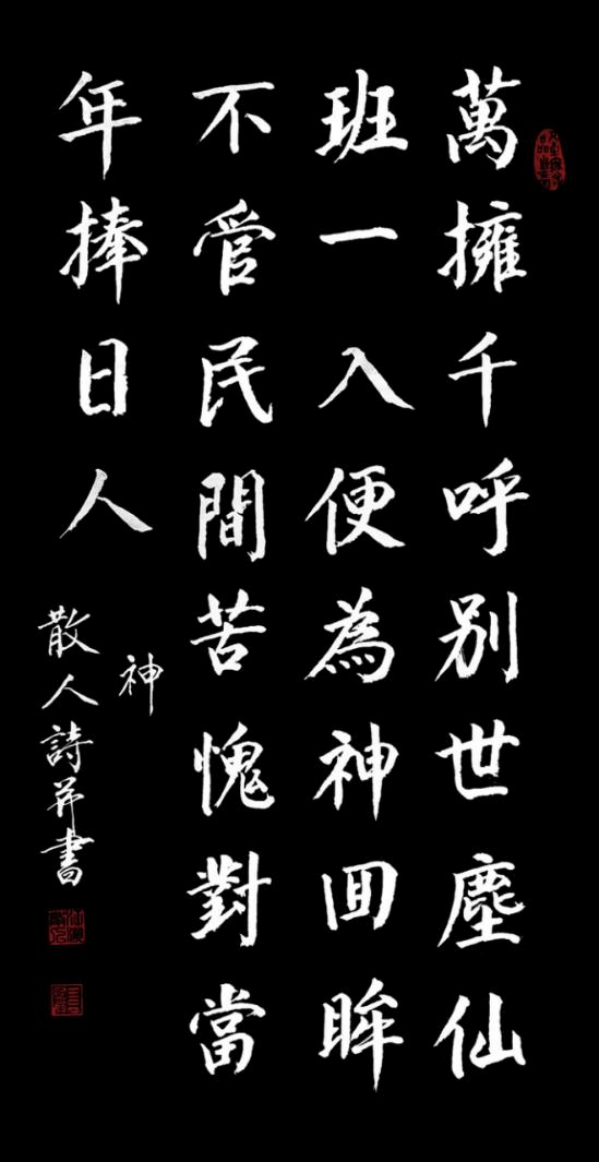 萬擁千呼別世塵仙
班一入便為神回眸
不管民間苦愧對當
年捧日人
神
散人詩并書